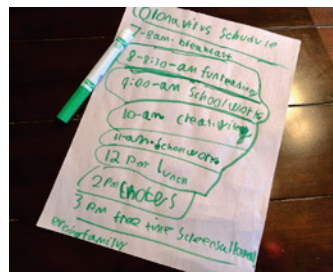 Coronavirus Schudule
7-8am-breakfast
8-8:30-am fun learning
9:00-am School work
10-am creativity
11-am-School work
12 pm lunch
2 pm chores
3 pm free time Screens allowed
being family